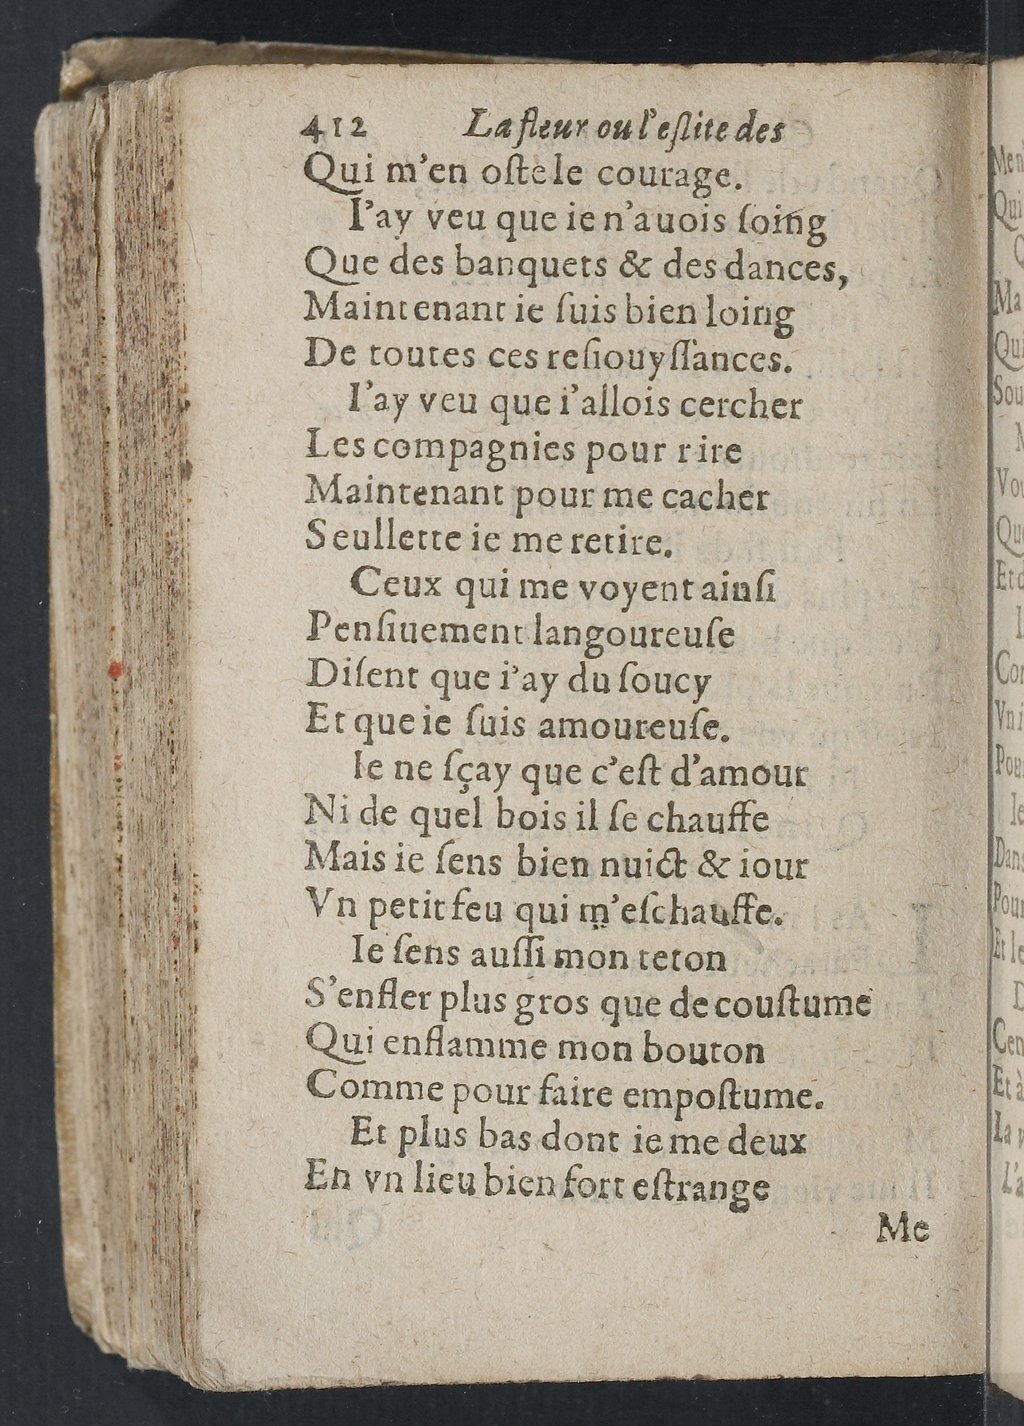 412 La fleur ou l'eſlite des
Qui m'en oſte le courage.
I'ay veu que ie n'auois ſoing
Que des banquets & des dances,
Maintenant ie ſuis bien loing
De toutes ces reſiouyſſances.
I'ay veu que i'allois cercher
Les compagnies pour rire
Maintenant pour me cacher
Seullette ie me retire.
Ceux qui me voyent ainſi
Penſiuement langoureuſe
Diſent que i'ay du ſoucy
Et que ie ſuis amoureuſe.
Ie ne ſçay que c'eſt d'amour
Ni de quel bois il ſe chauffe
Mais ie ſens bien nuict & iour
Vn petit feu qui m'eſchauffe.
Ie ſens auſſi mon teton
S'enfler plus gros que de couſtume
Qui enflamme mon bouton
Comme pour faire empoſtume.
Et plus bas dont ie me deux
En vn lieu bien fort eſtrange
Me
Men
Qui
Q
Ma
Qui
Sou
Vou
Que
Et c
Con
Vn i
Pour
Ie
Dans
Pour
Et le
D
Cen
Et à
La
L'a